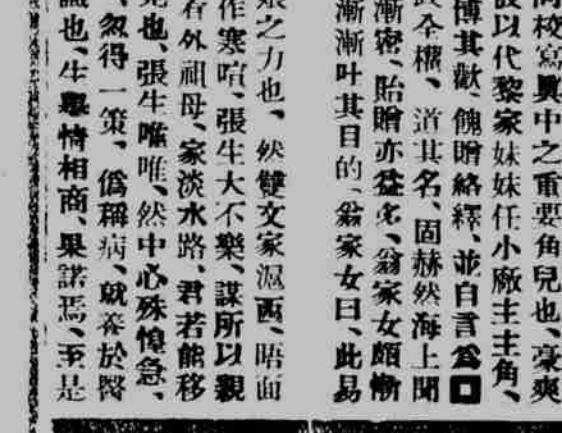 校寫眞中之重要角兒也、豪爽
以代黎家妹妹任小廠主主角、
博其歡、餽贈絡繹、並自言爲□
全權、道其名、固赫然海上聞
漸密、貽贈亦益多、翁家女頗慚
漸漸叶其目的、翁家女曰、此易
之力也、然雙文家滬西、晤面
作寒喧、張生大不樂、謀所以親
若外祖母、家淡水路、君若能移
也、張生唯唯、然中心殊惶急、
忽得一策、僞稱病、就養於醫
也、生舉情相商、果諾焉、至是